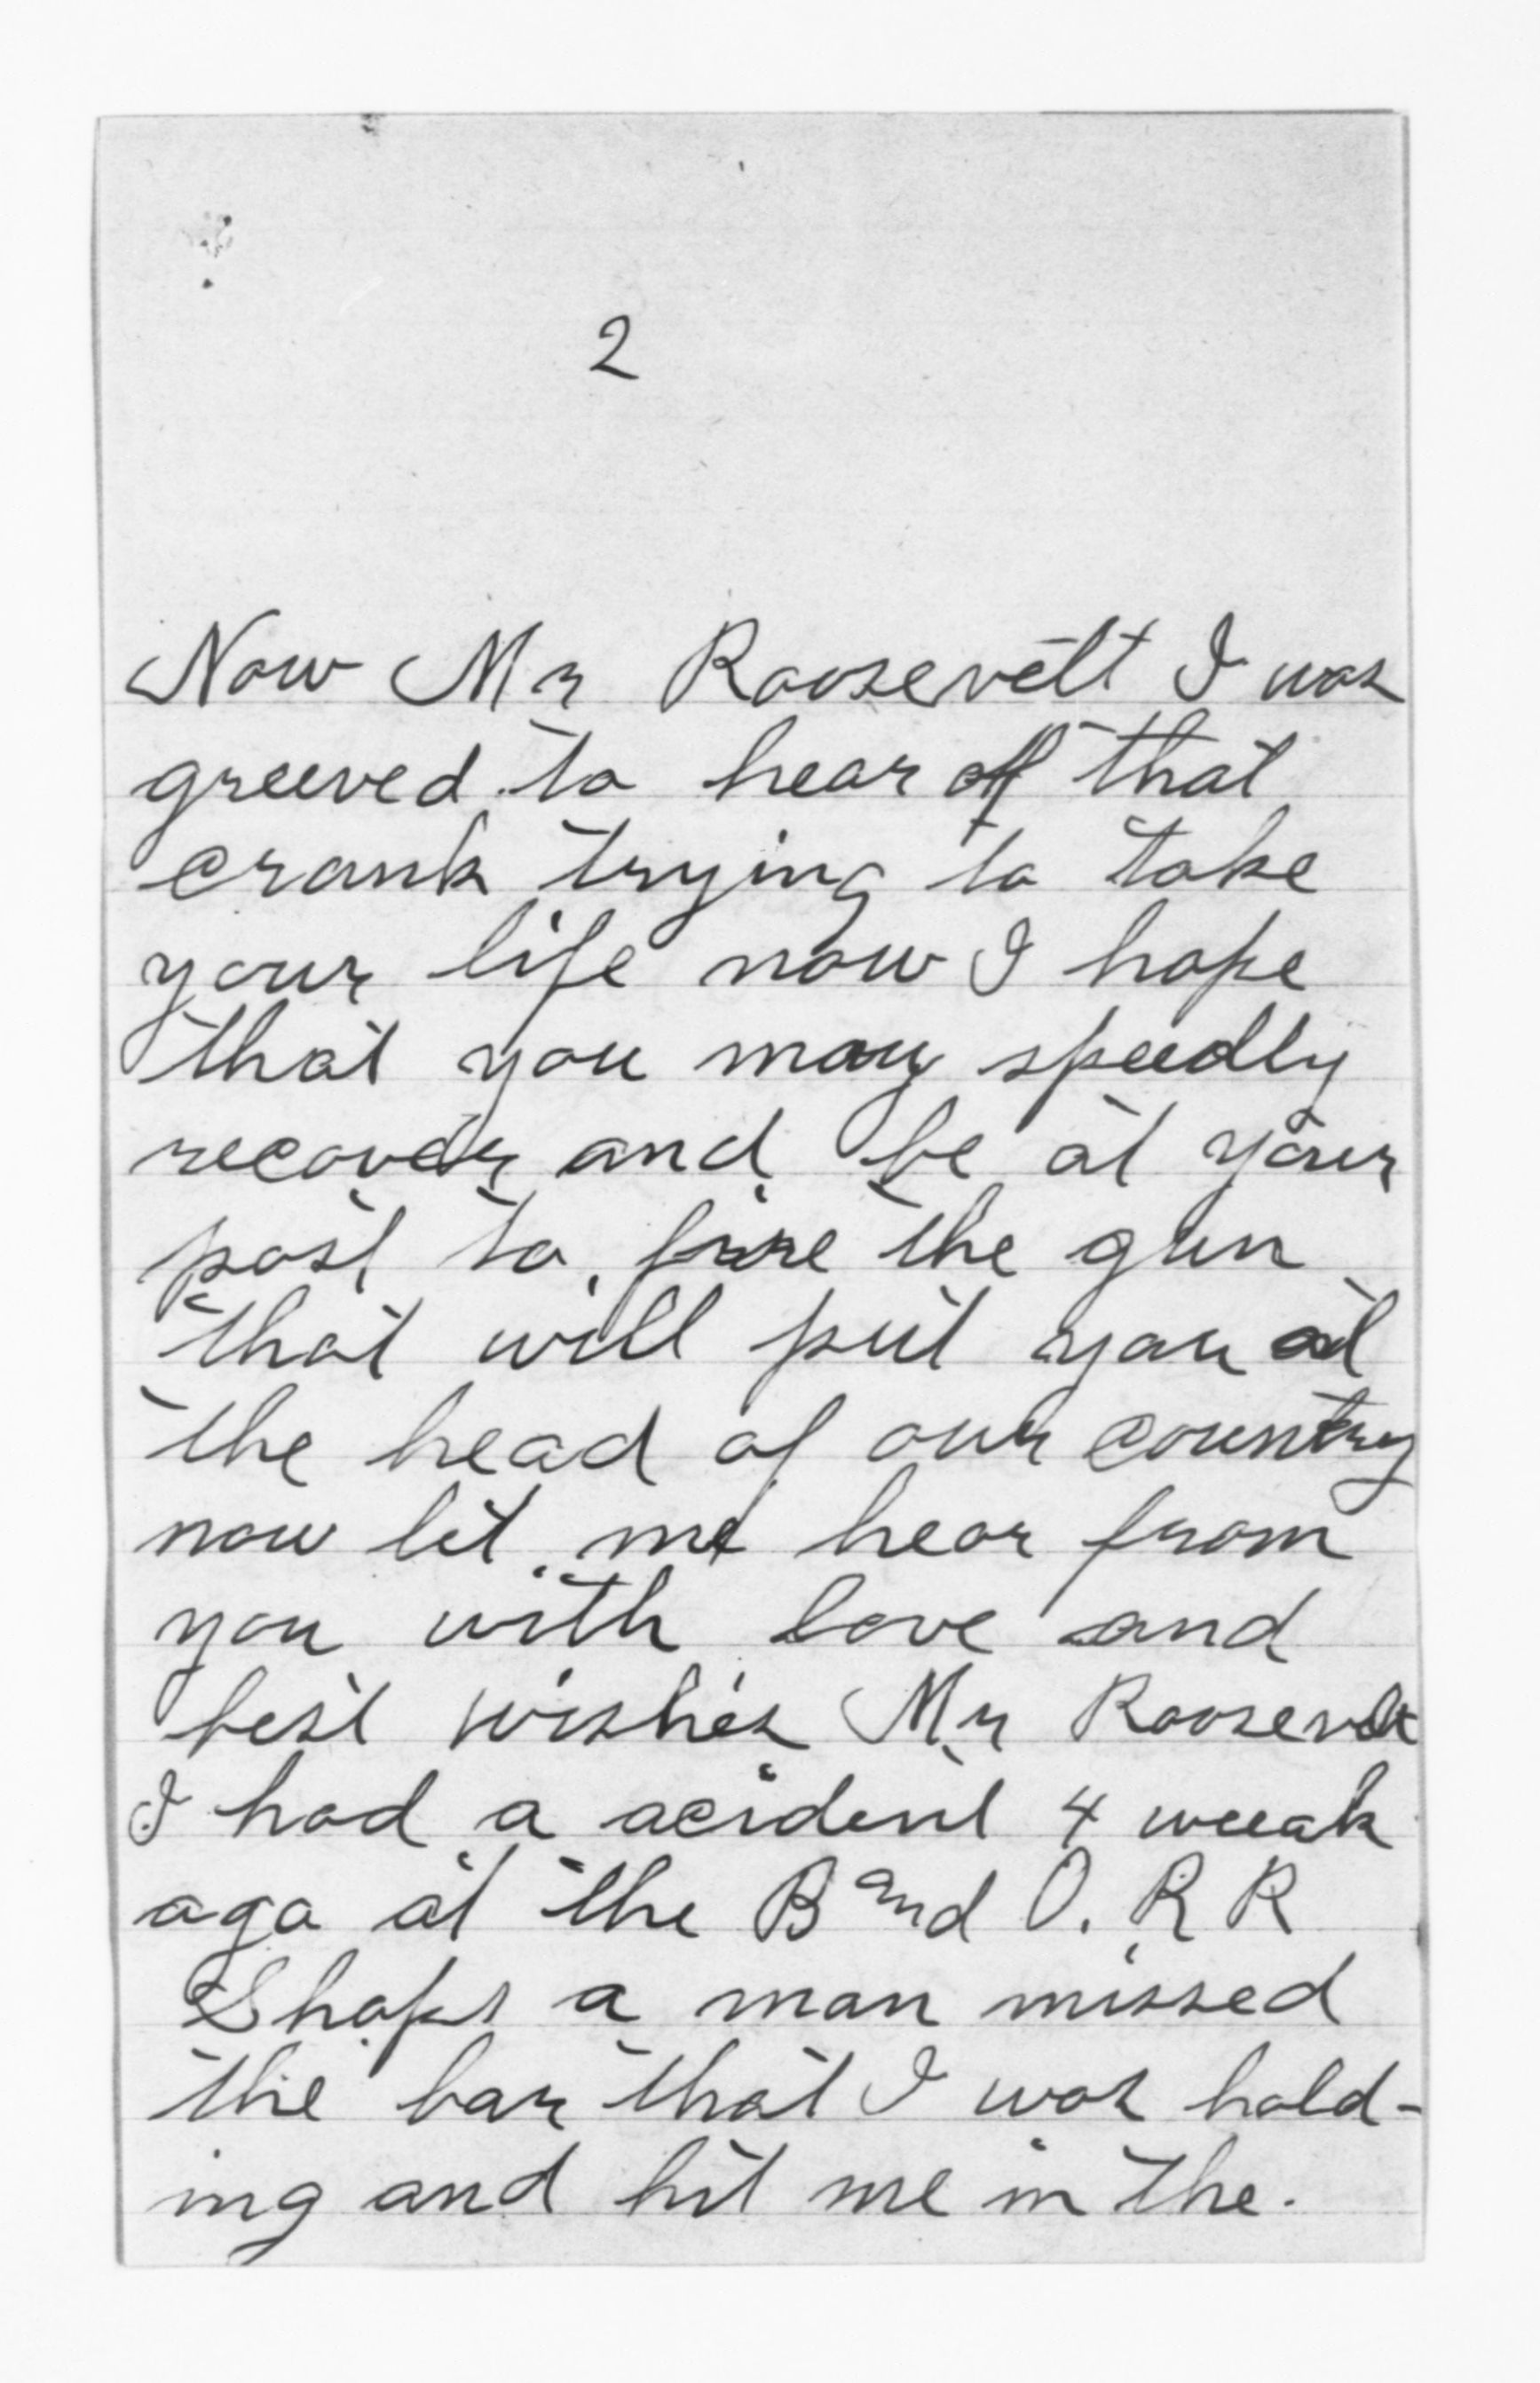 2
Now Mr Roosevelt I was
greeved to hear off that
crank trying to take
your life now I hope
that you may speedly
recover and be at your
post to fire the gun
that will put you at
the head of our country
now let me hear from
you with love and
best wishes Mr Roosevelt
I had a acident 4 weeak
ago at the B and O. R R
Shops a man missed
the bar that I was hold-
ing and hit me in the.